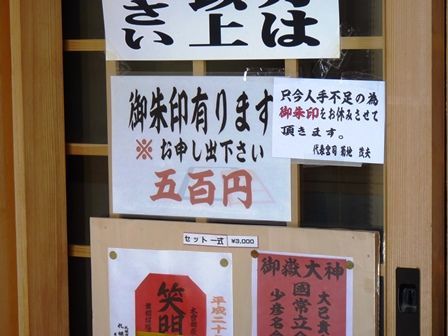 方は
以上
さい
御朱印有ります
※お申し出下さい
五百円
只今人手不足の為
御朱印をお休みさせて
頂きます。
代表宮司
茂夫
セット一式 ¥3,000
笑明
平成二十
御嶽大神
大己貴
國常立
少彦名